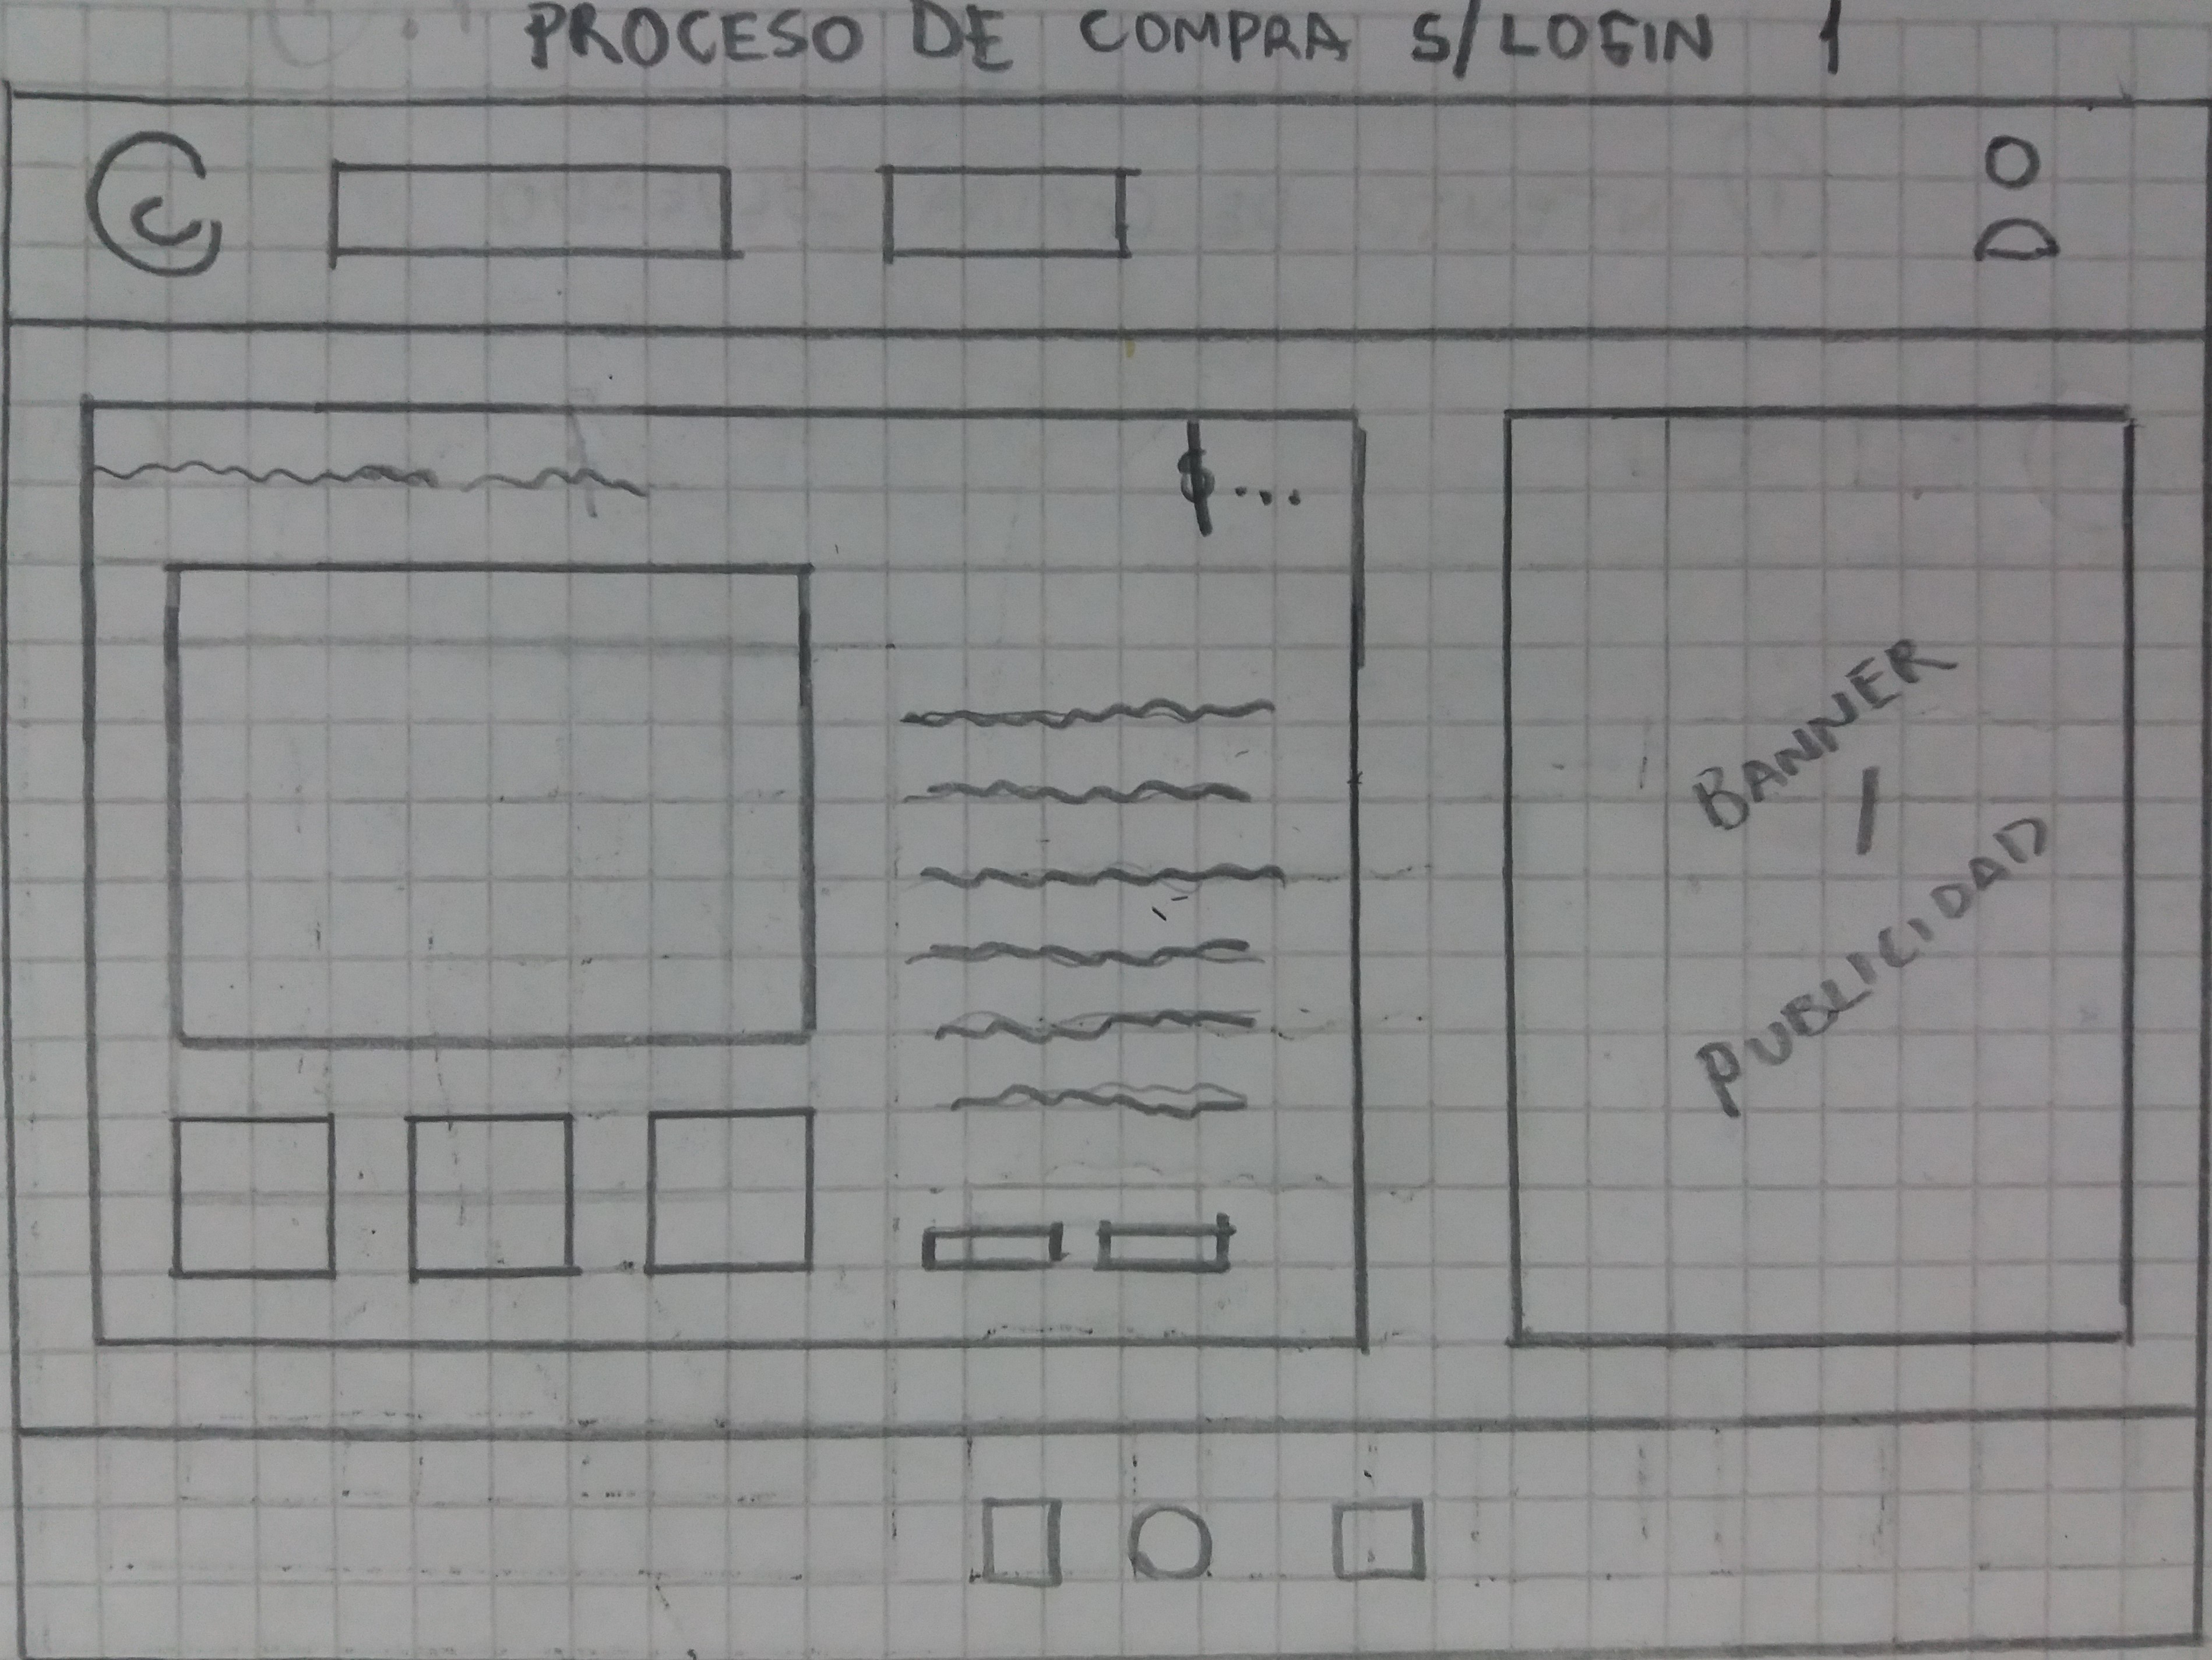 PROCESO DE COMPRA S/LOGIN 1
$...
BANNER
/
PUBLICIDAD